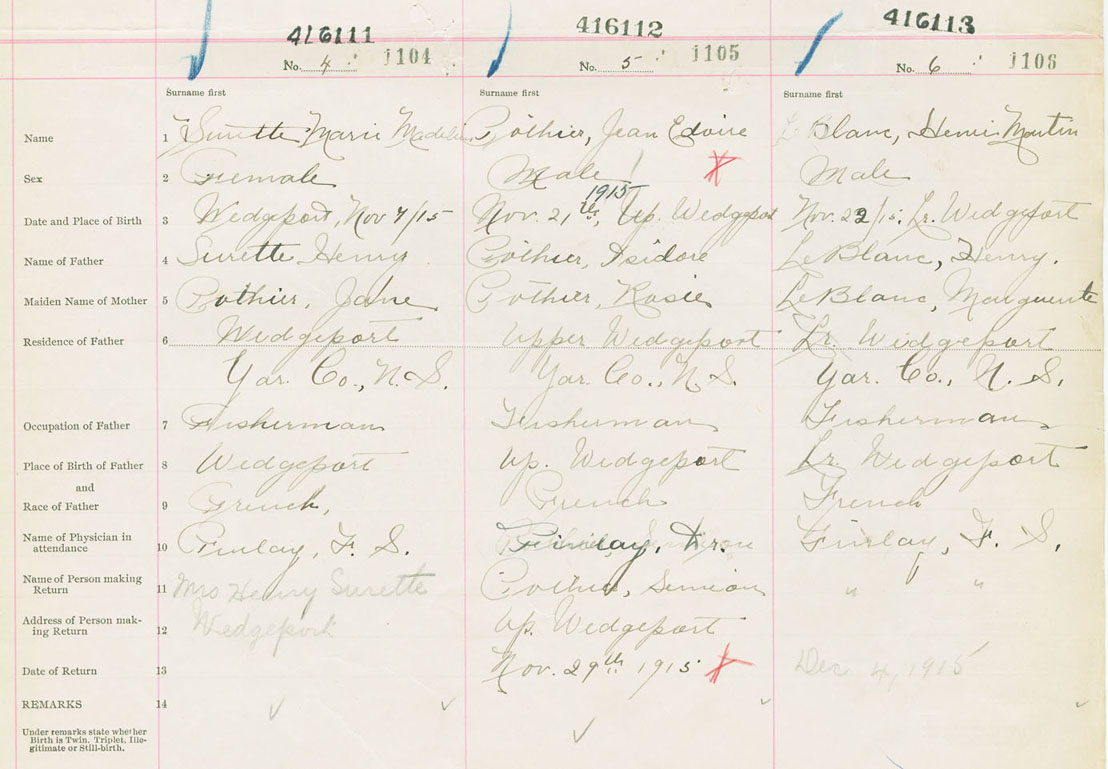 416111 416112 416113
No. 4 j104 No. 5 j105 No. 6 j106
Surname first Surname first Surname first
Name 1 Surette Marie Pothier, Jean Edoire Le Blanc, Henri Martin
Sex 2 Female Male Male
1915
Date and Place of Birth 3 Wedgeport, Nov 7/15 Nov. 21th, Up. Wedgeport Nov. 22/15, Lr. Wedgeport
Name of Father 4 Surette Henry Pothier, Isidore LeBlanc, Henry.
Maiden Name of Mother 5 Pothier, Jane Pothier, Rosie LeBlanc, Marguerite
Residence of Father 6 Wedgeport Upper Wedgeport Lr. Wedgeport
Yar. Co., N. S. Yar. Co., N. S. Yar. Co., N. S.
Occupation of Father 7 Fisherman Fisherman Fisherman
Place of Birth of Father 8 Wedgeport Up. Wedgeport Lr. Wedgeport
and
Race of Father 9 French, French French
Name of Physician in
attendance 10 Finlay, F. S. Finlay, Dr. Finlay, F. S.
Name of Person making
Return 11 Mrs Henry Surette Pothier, Simeon " "
Address of Person mak-
ing Return 12 Wedgeport Up. Wedgeport
Date of Return 13 Nov. 29th 1915 Dec 4, 1915
REMARKS 14
Under remarks state whether
Birth is Twin, Triplet, Ille-
gitimate or Still-birth.